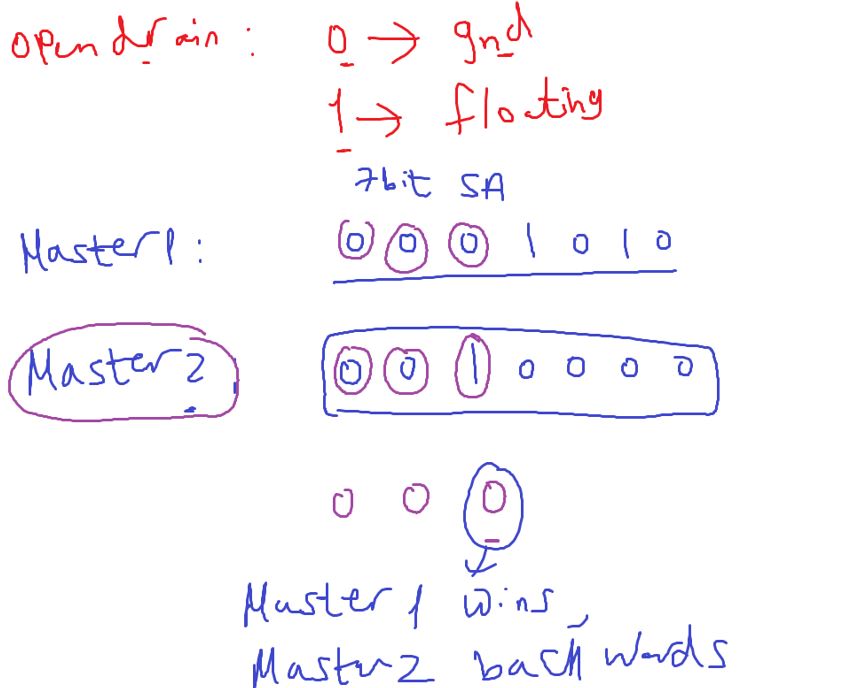 open drain : 0 → gnd
1 → floating
7bit SA
Master 1 : 0 0 0 1 0 1 0
Master 2 0 0 1 0 0 0 0
0 0 0
Master 1 wins,
Master 2 back words